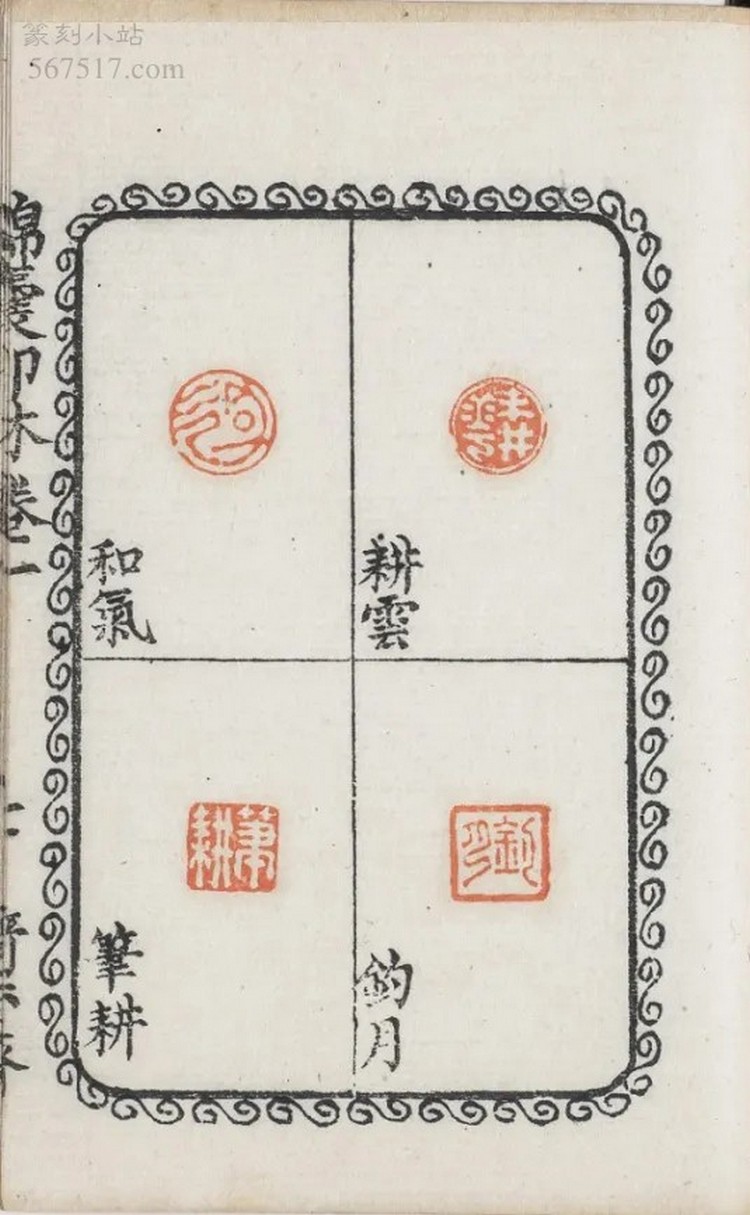 篆刻小站
567517.com
耕雲
和氣
釣月
筆耕